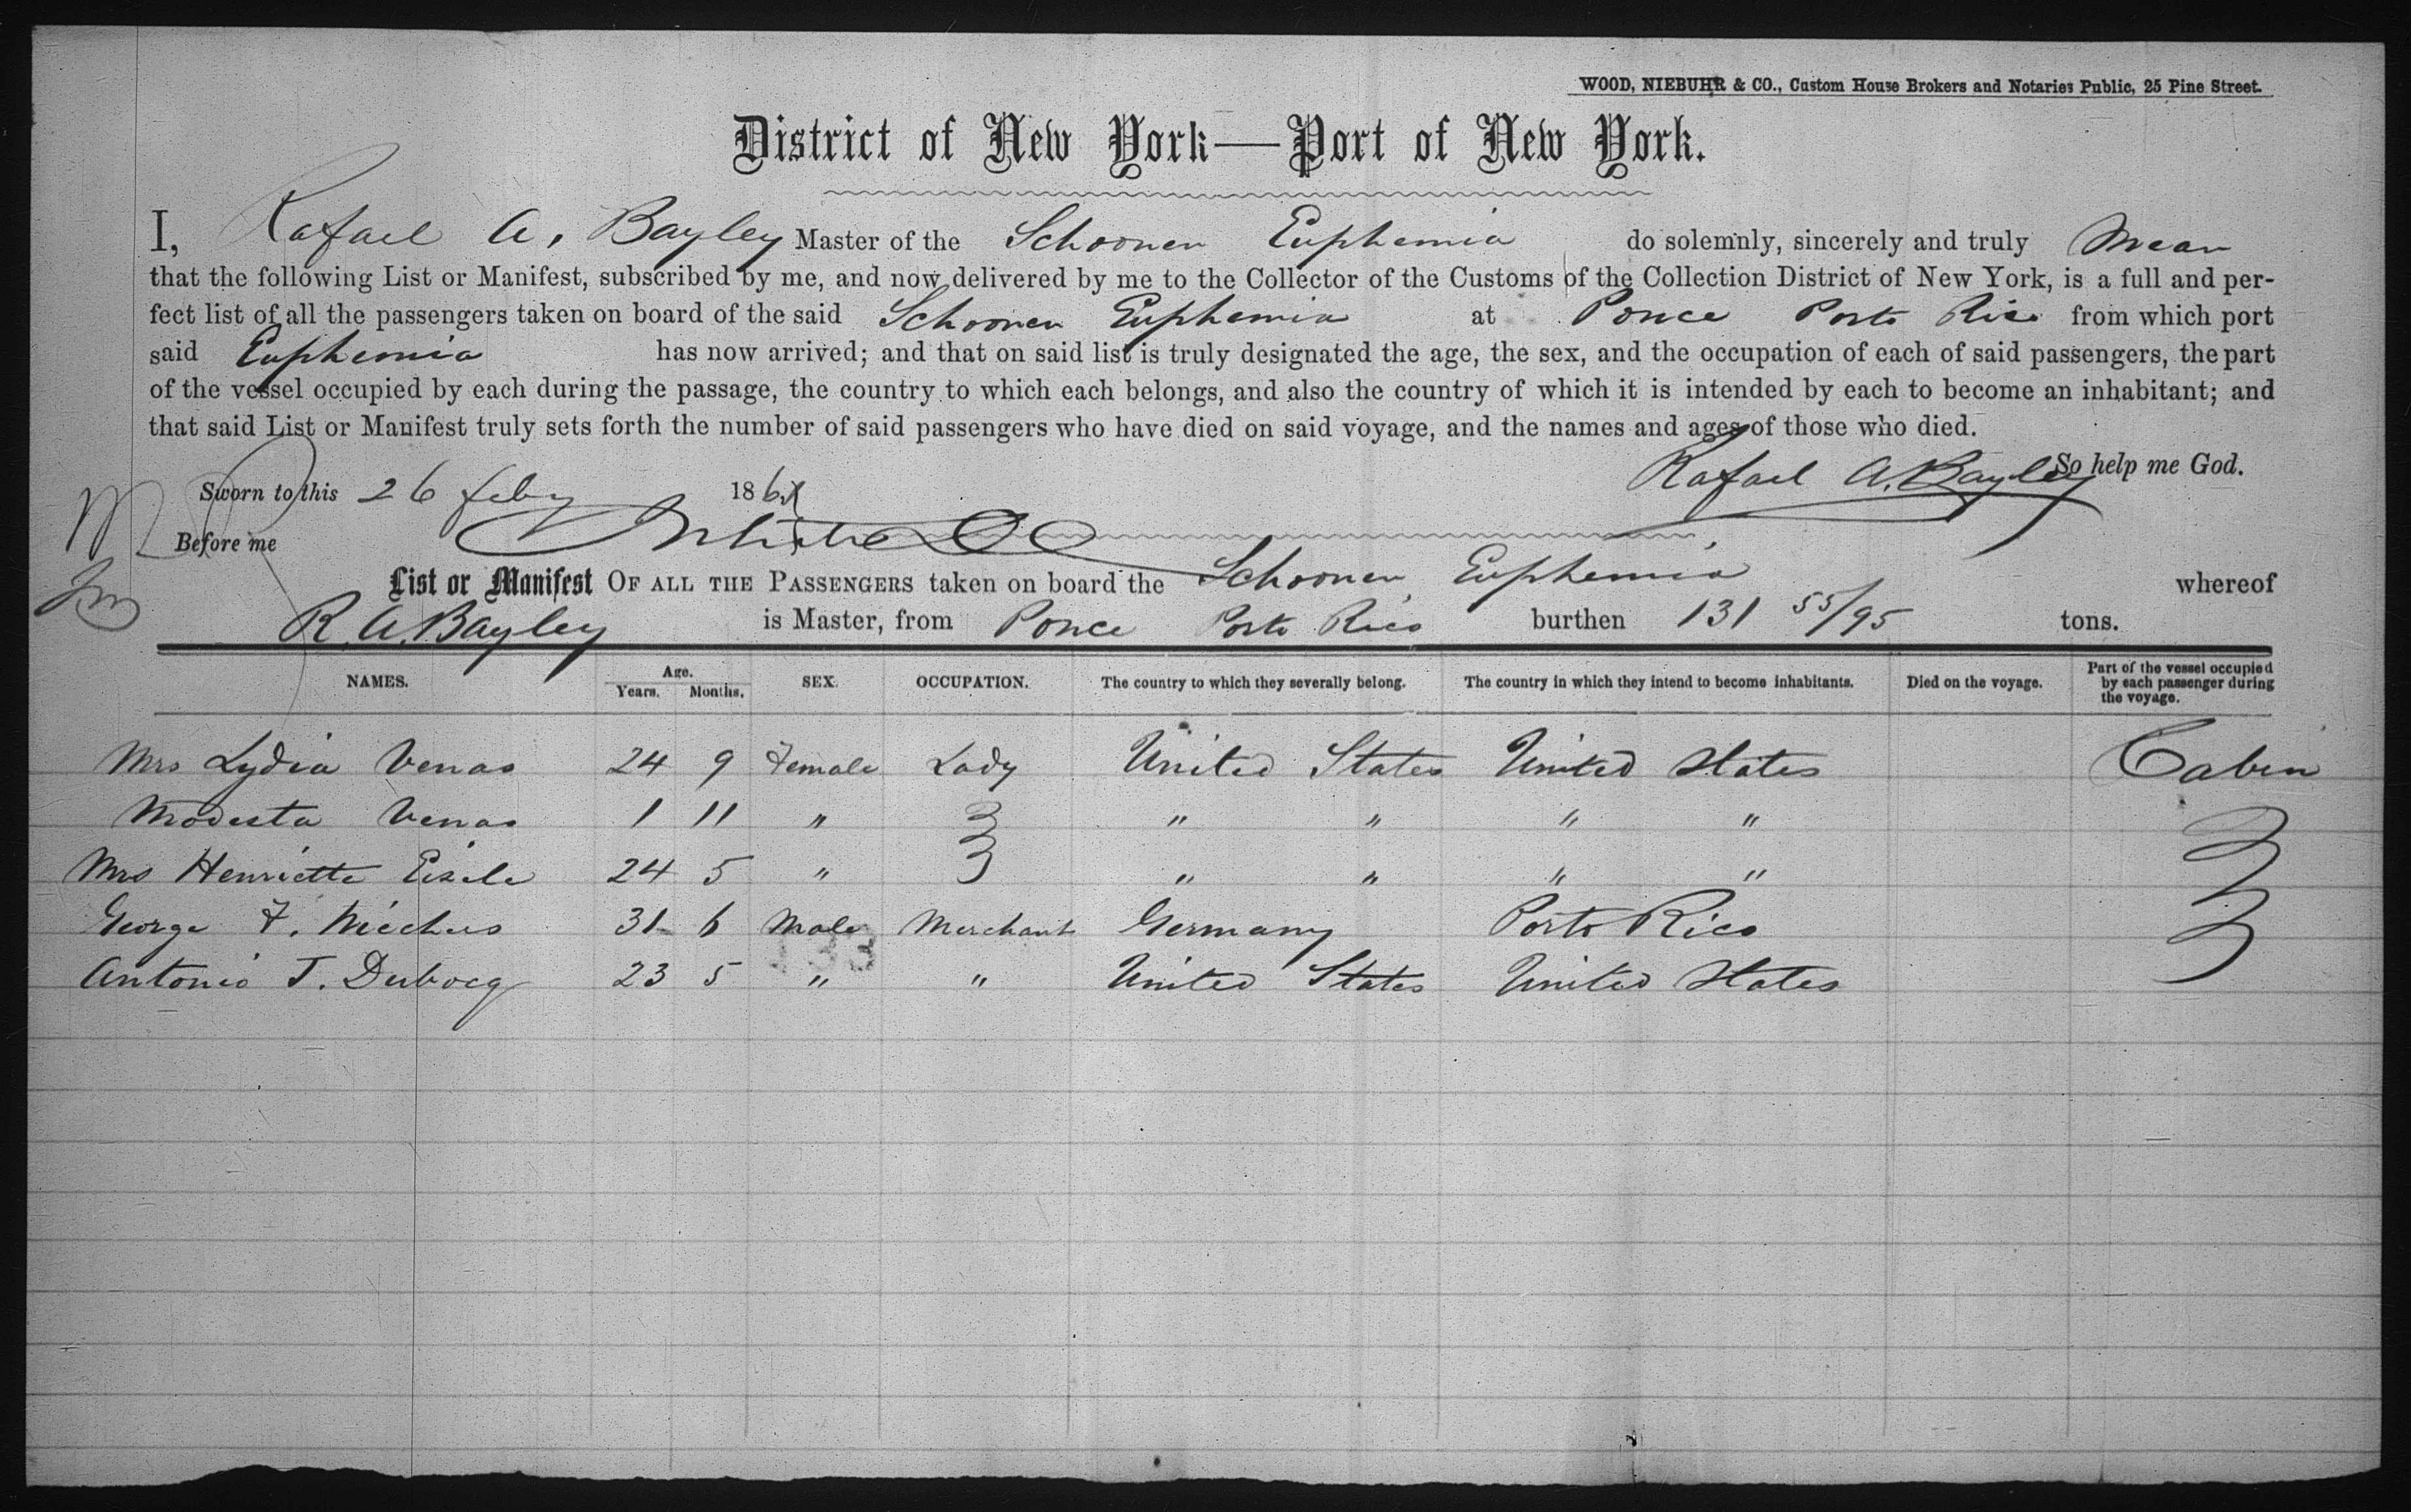 WOOD, NIEBUHR & CO., Custom House Brokers and Notaries Public, 25 Pine Street.
District of New York—Port of New York.
I, Rafael A. Bayley Master of the Schooner Euphemia do solemnly, sincerely and truly swear
that the following List or Manifest, subscribed by me, and now delivered by me to the Collector of the Customs of the Collection District of New York, is a full and per-
fect list of all the passengers taken on board of the said Schooner Euphemia at Ponce Porto Rico from which port
said Euphemia has now arrived; and that on said list is truly designated the age, the sex, and the occupation of each of said passengers, the part
of the vessel occupied by each during the passage, the country to which each belongs, and also the country of which it is intended by each to become an inhabitant; and
that said List or Manifest truly sets forth the number of said passengers who have died on said voyage, and the names and ages of those who died.
Rafael A. Bayley So help me God.
Sworn to this 26 feby 186
Before me
List or Manifest OF ALL THE PASSENGERS taken on board the Schooner Euphemia whereof
R. A. Bayley is Master, from Ponce Porto Rico burthen 131 55/95 tons.
NAMES. Age. Years. Months. SEX. OCCUPATION. The country to which they severally belong. The country in which they intend to become inhabitants. Died on the voyage. Part of the vessel occupied by each passenger during the voyage.
Mrs Lydia Venas 24 9 Female Lady United States United States Cabin
Modesta Venas 1 11 " " " " "
Mrs Henriette Eisele 24 5 " " " " "
George F. 31 6 Male Merchant Germany Porto Rico
Antonio T. Dubocq 23 5 " " United States United States